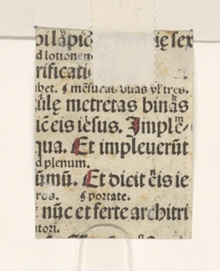 bi lāpid ię sex
d lotionem
rificati
bet. ¶ mēsuras duas vł tres.
ulę metretas binas
icēis iesus. Implete
qua. Et impleuerūt
d plenum.
ūmū. Et dicit eis ie
ros. ¶ portate.
nūc et ferte architri
atori.